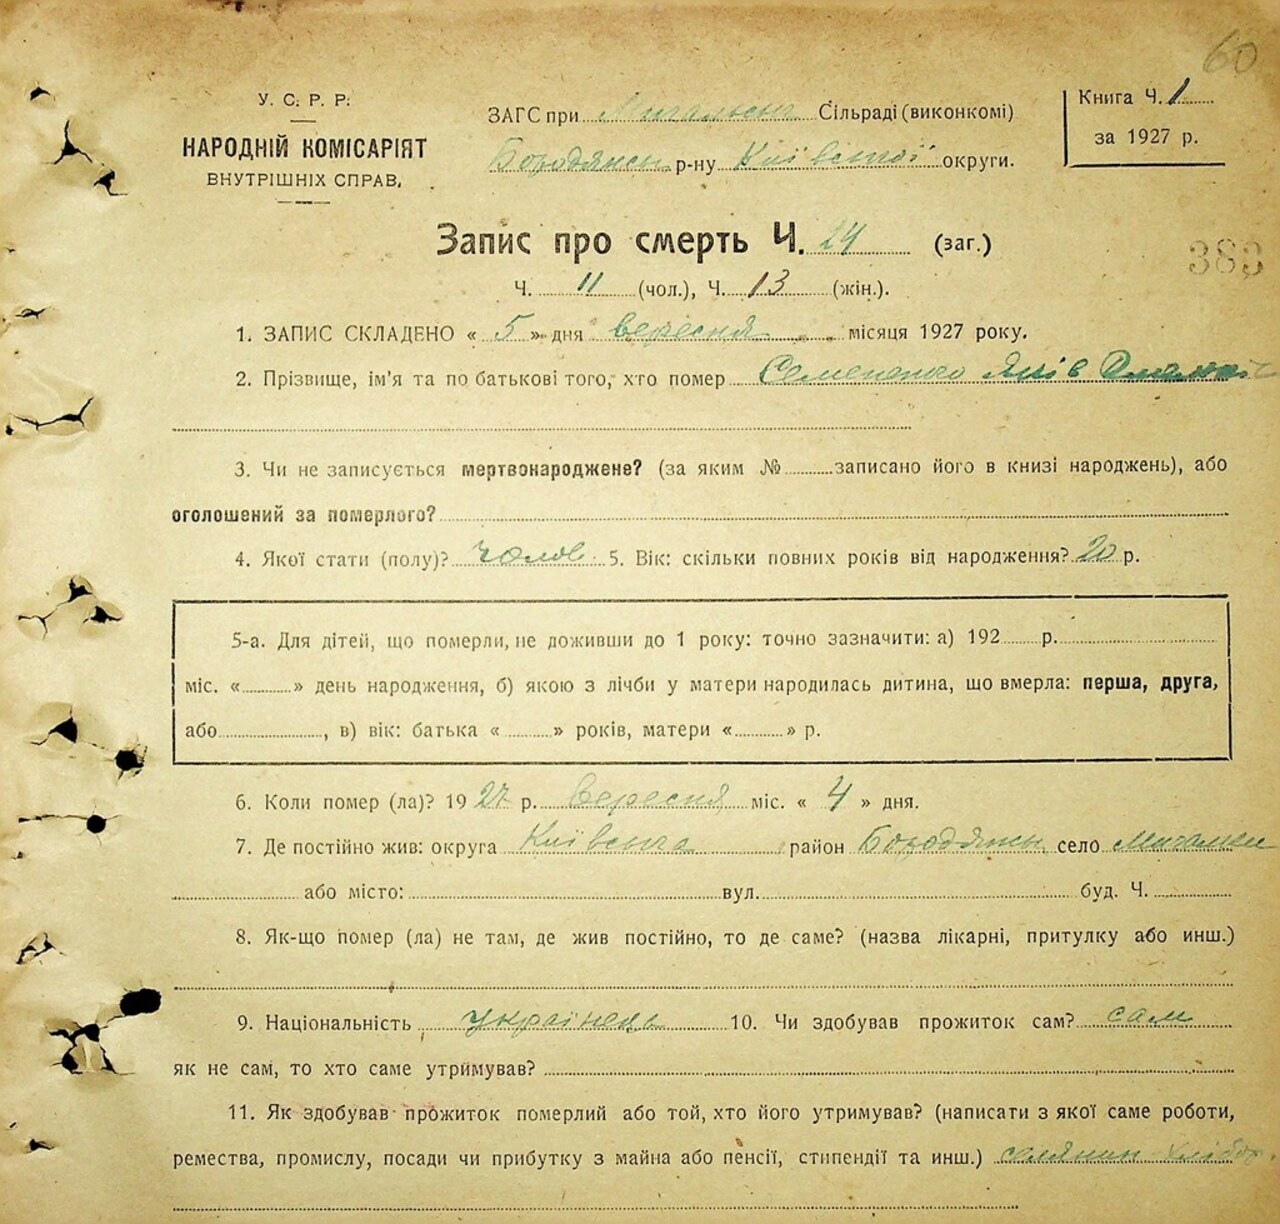 60
У. С. Р. Р.
НАРОДНІЙ КОМІСАРІЯТ
ВНУТРІШНІХ СПРАВ.
ЗАГС при Сільраді (виконкомі)
Бородянськ р-ну Київської округи.
Книга Ч. 1
за 1927 р.
Запис про смерть Ч. 24 (заг.)
383
Ч. 11 (чол.), Ч. 13 (жін.).
1. ЗАПИС СКЛАДЕНО « 5 » дня вересня місяця 1927 року.
2. Прізвище, ім'я та по батькові того, хто помер Яків
3. Чи не записується мертвонароджене? (за яким № записано його в книзі народжень), або
оголошений за померлого?
4. Якої стати (полу)? Чолов 5. Вік: скільки повних років від народження? 20 р.
5-а. Для дітей, що померли, не доживши до 1 року: точно зазначити: а) 192 р.
міс. « » день народження, б) якою з лічби у матери народилась дитина, що вмерла: перша, друга,
або , в) вік: батька « » років, матери « » р.
6. Коли помер (ла)? 19 27 р. Вересня міс. « 4 » дня.
7. Де постійно жив: округа Київська район Бородянськ село
або місто: вул. буд. Ч.
8. Як-що помер (ла) не там, де жив постійно, то де саме? (назва лікарні, притулку або инш.)
9. Національність українець 10. Чи здобував прожиток сам? сам
як не сам, то хто саме утримував?
11. Як здобував прожиток померлий або той, хто його утримував? (написати з якої саме роботи,
ремества, промислу, посади чи прибутку з майна або пенсії, стипендії та инш.) селянин хлібор.